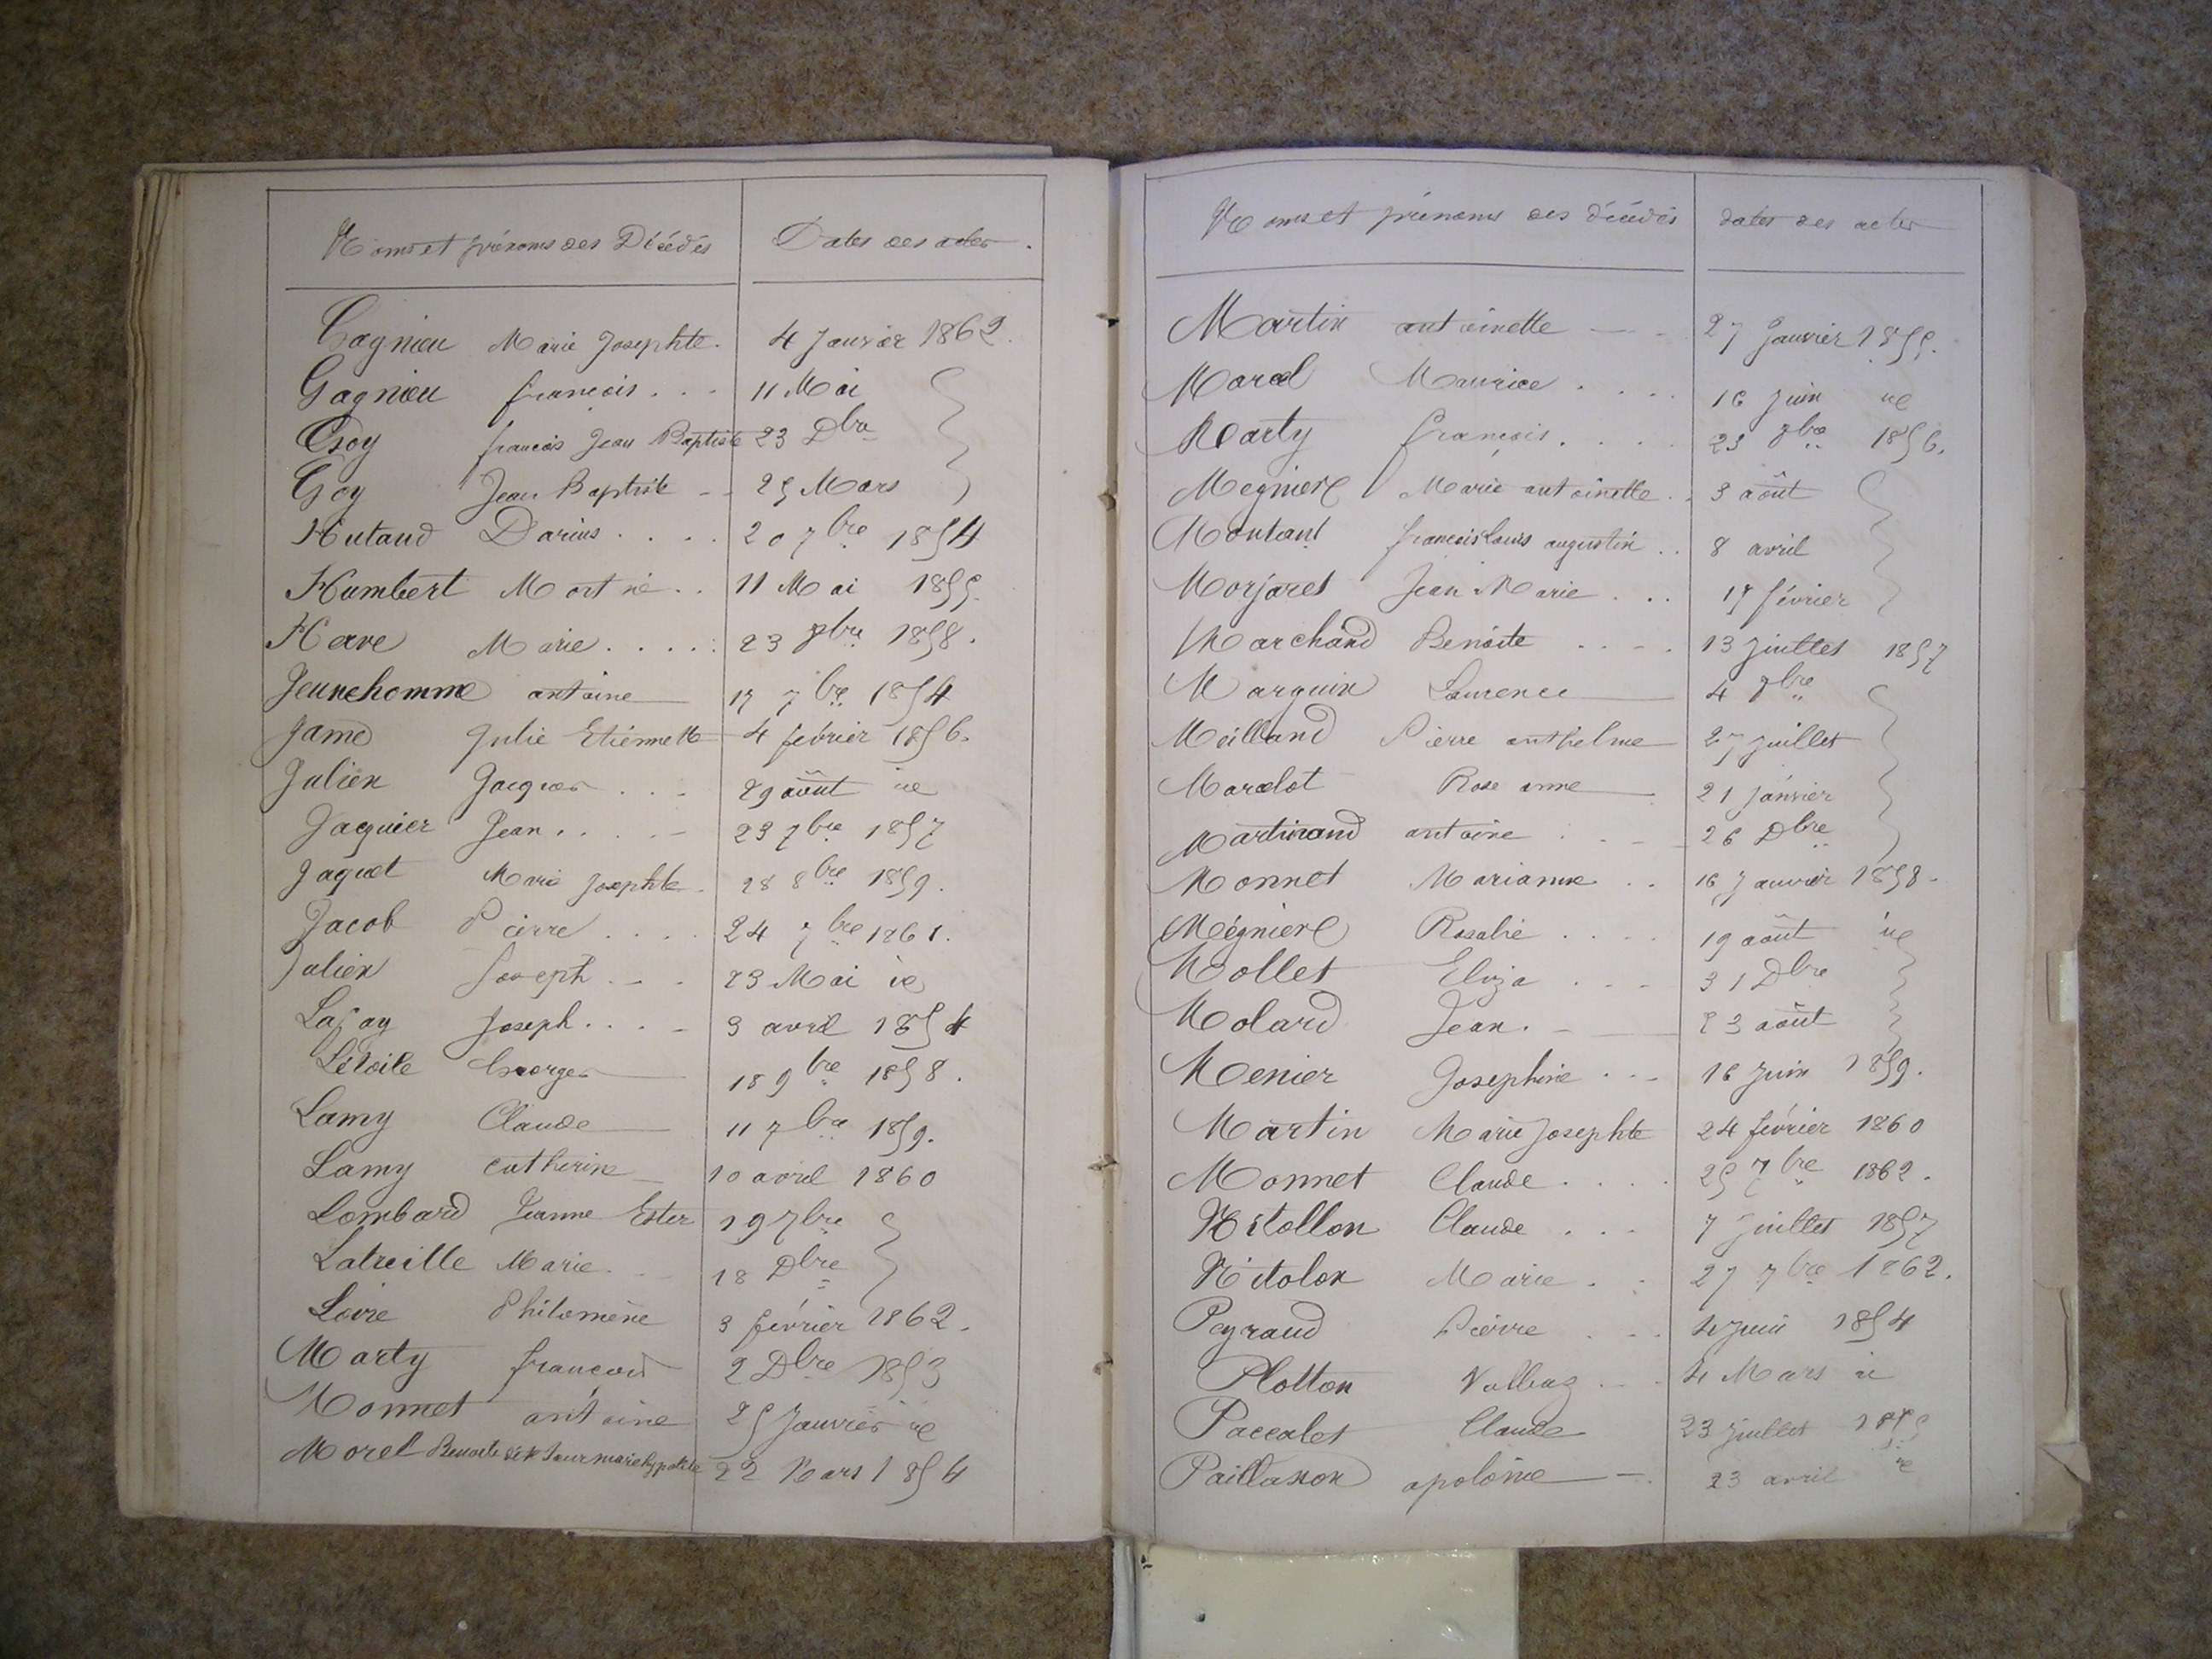 Noms et prénoms des Décédés Dates des actes.
Gagnieu Marie Josephte. 4 Janvier 1862.
Gagnieu françois . . . 11 Mai
Goy francois Jean Baptiste 23 Dbre
Goy Jean Baptiste -- 25 Mars
Hutaud Darius . . . . 20 7bre 1854
Humbert Mort né . . 11 Mai 1855.
Herve Marie . . . . . 23 9bre 1858.
Jeunehomme antoine 17 7bre 1854
Jame Julie Etiennette 4 février 1856.
Julien Jacques . . . 29 août id
Jacquier Jean . . . . - 23 7bre 1857
Jaquet Marie Josephte 28 8bre 1859.
Jacob Pierre . . . . 24 7bre 1861.
Julien Joseph . - . 23 Mai id
Lafay Joseph . . . - 3 avril 1854
Létoile Georges 18 9bre 1858.
Lamy Claude 11 7bre 1859.
Lamy Catherine 10 avril 1860
Lombard Jeanne Ester 19 7bre
Latreille Marie 18 Dbre
Loire Philomène 3 février 1862.
Marty francois 2 Dbre 1853
Monnet antoine 25 Janvier id
Morel Benoite 22 Mars 1854
Noms et prénoms des décédés dates des actes
Martin antoinette 27 Janvier 1855.
Marcel Maurice . . . . 16 Juin id
Marty francois . . . . 23 9bre 1856.
Megniere Marie antoinette . . 3 août
Montant francois Louis augustin . . 8 avril
Morjaret Jean Marie . . . 17 février
Marchand Benoite . . - . 13 Juillet 1857
Marguin Laurence 4 9bre
Meilland Pierre anthelme 27 juillet
Marcelot Rose anne 21 Janvier
Martinand antoine . - - 26 Dbre
Monnet Marianne . . 16 Janvier 1858.
Mégniere Rosalie . . . . 19 août id
Mollet Eliza . . - - 31 Dbre
Molard Jean. - 23 août
Menier Josephine . . - 16 Juin 1859.
Martin Marie Josephte 24 février 1860
Monnet Claude . . . . 25 7bre 1862.
Nitollon Claude . . . 7 juillet 1857
Nitolon Marie . . 27 7bre 1862.
Peyraud Pierre . . . 4 Juin 1854
Plotton . . . 4 Mars id
Paccalet Claude 23 Juillet
Paillasson apolonie 23 avril id